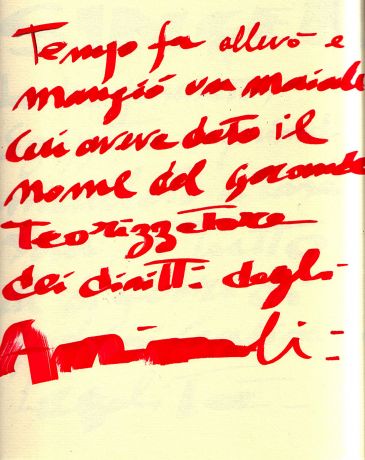 Tempo fa allevò e
mangiò un maiale
cui aveva dato il
nome del garante
Teorizzatore
dei diritti degli
Animali -